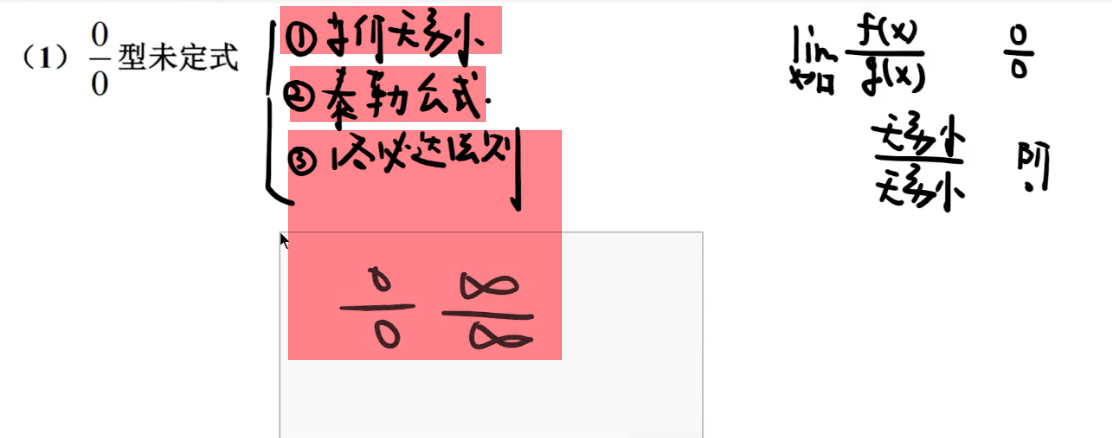 (1) 0/0 型未定式
① 等价无穷小
② 泰勒公式.
③ 洛必达法则
0/0 ∞/∞
lim x→□ f(x)/g(x) 0/0
无穷小/无穷小 阶